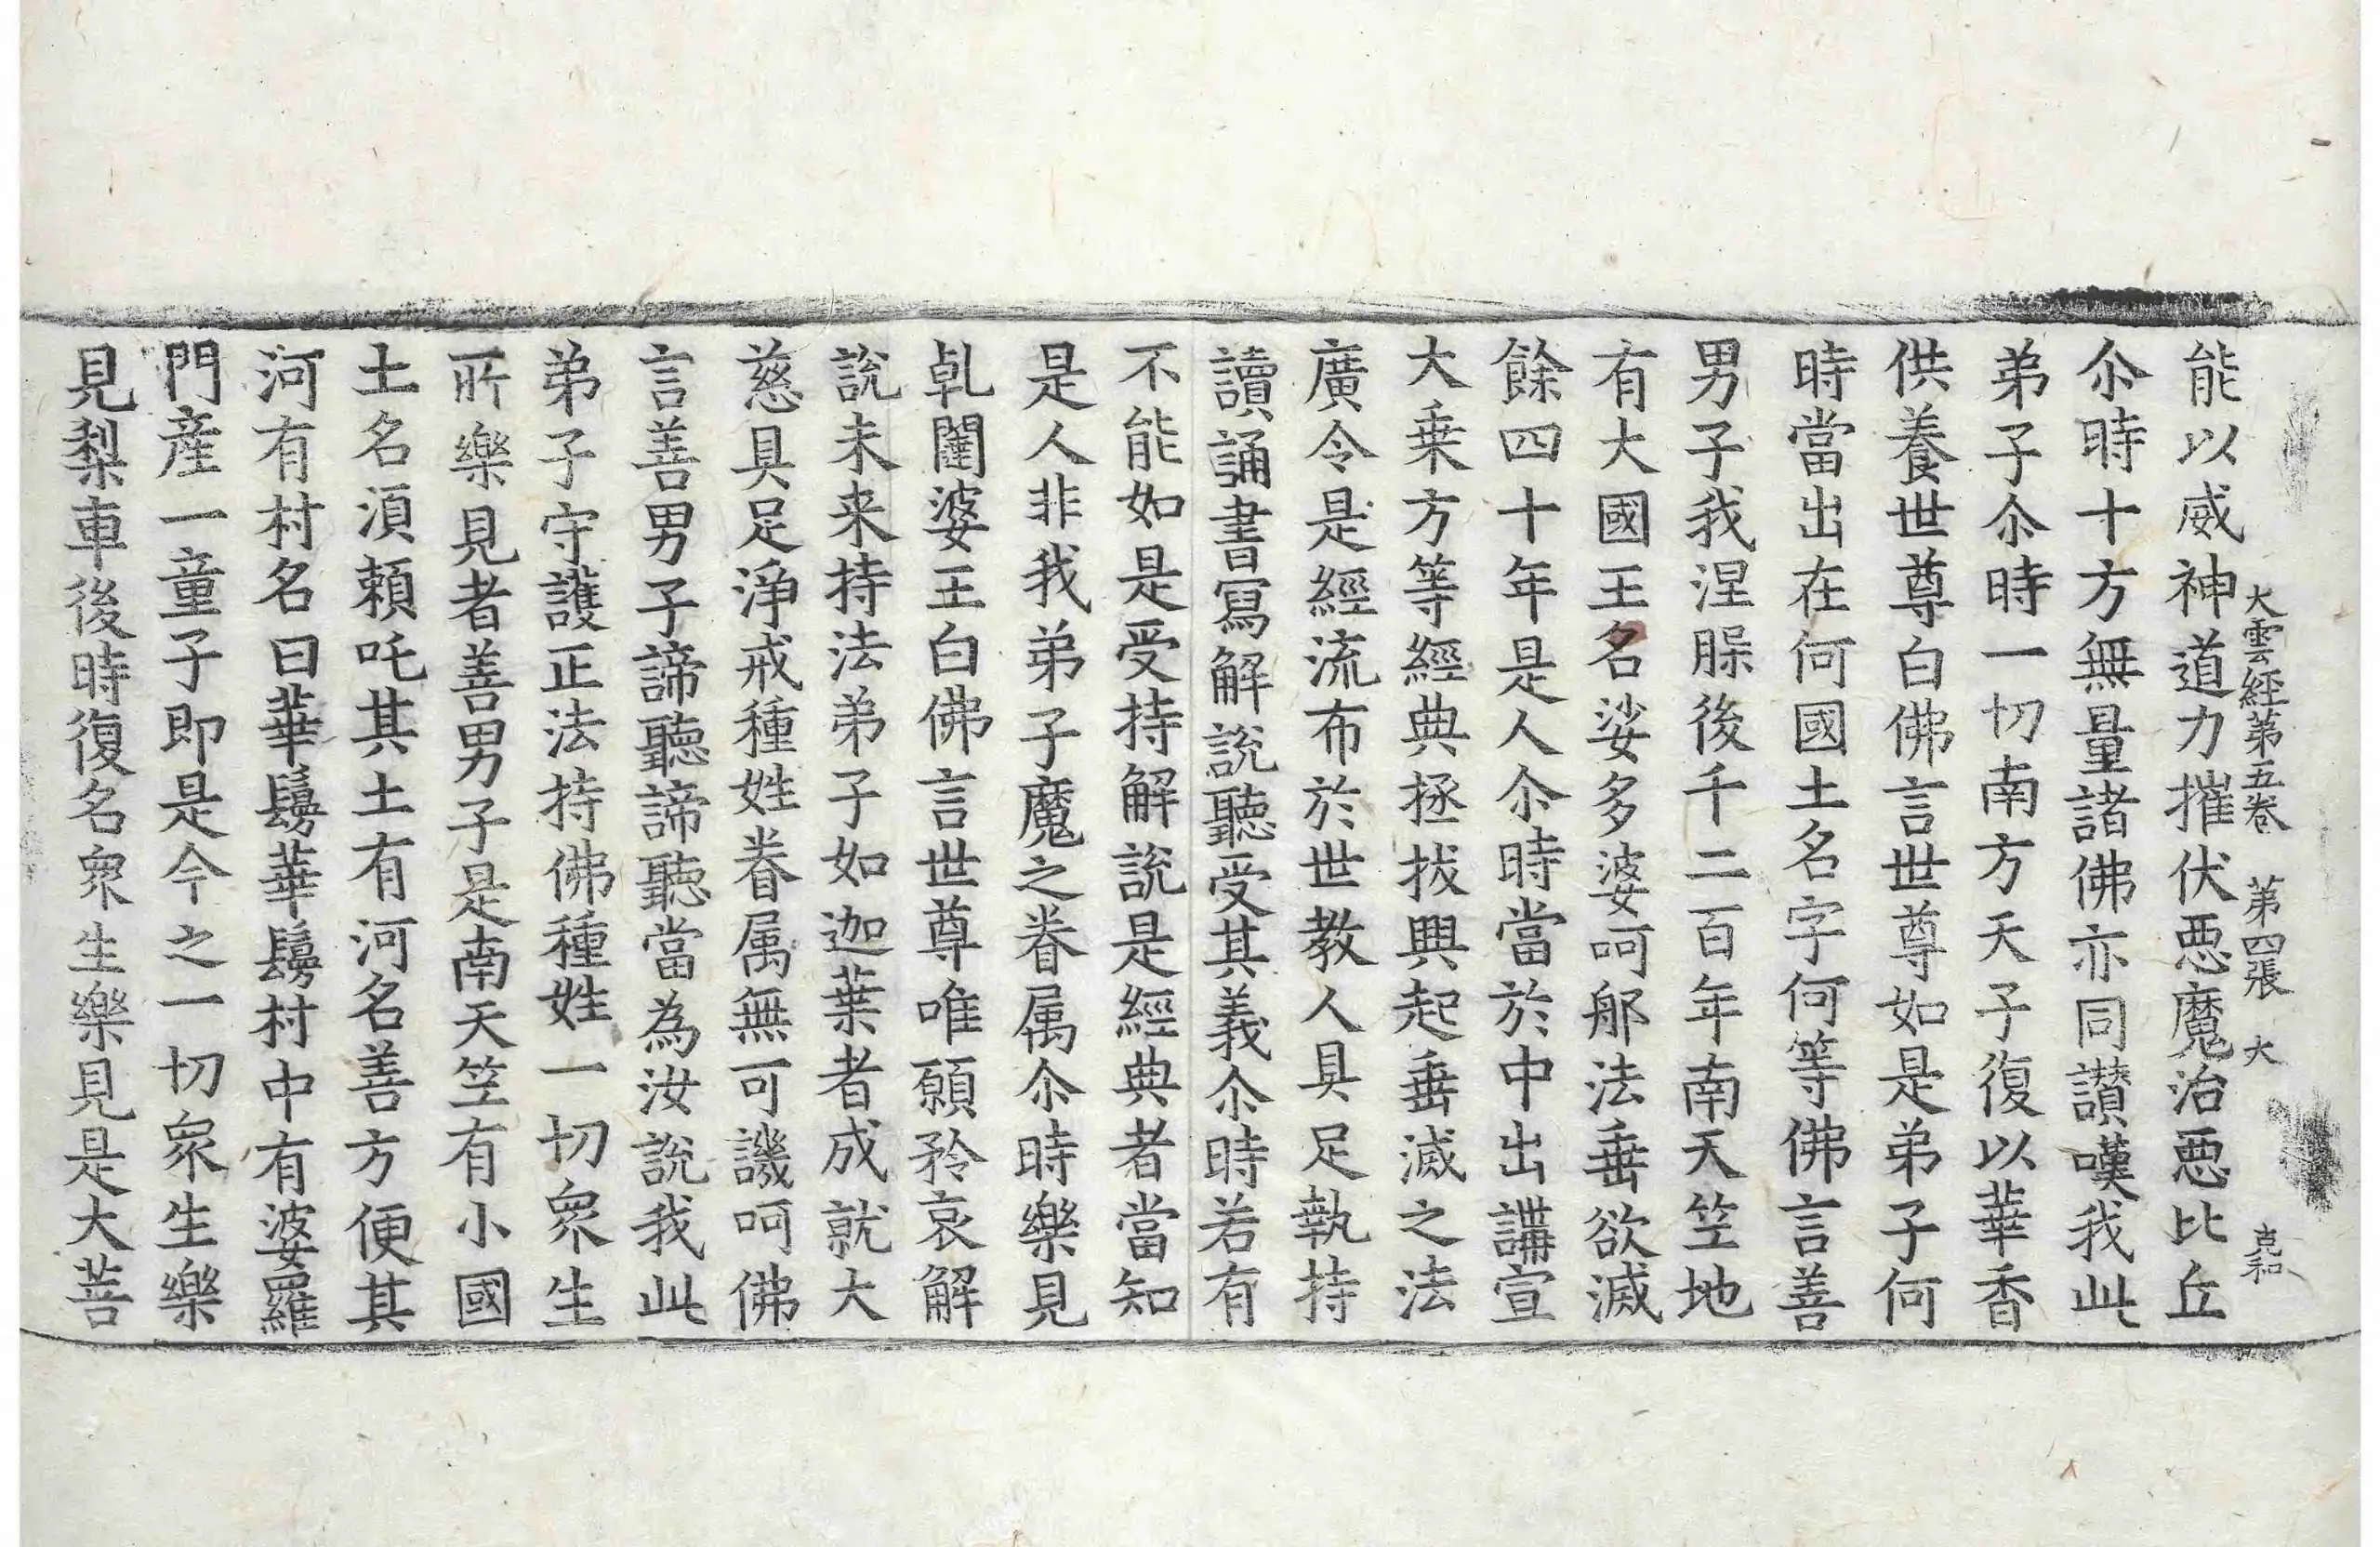 大雲經第五卷　第四張　大　克和
能以威神道力摧伏惡魔治惡比丘
尒時十方無量諸佛亦同讃嘆我此
弟子尒時一切南方天子復以華香
供養世尊白佛言世尊如是弟子何
時當出在何國土名字何等佛言善
男子我涅槃後千二百年南天笁地
有大國王名娑多婆呵那法垂欲滅
餘四十年是人尒時當於中出講宣
大乗方等經典拯拔興起垂滅之法
廣令是經流布於世教人具足執持
讀誦書寫解說聽受其義尒時若有
不能如是受持解說是經典者當知
是人非我弟子魔之眷属尒時樂見
乹闥婆王白佛言世尊唯願矜哀解
說未来持法弟子如迦葉者成就大
慈具足淨戒種姓眷属無可譏呵佛
言善男子諦聽諦聽當為汝說我此
弟子守護正法持佛種姓一切衆生
所樂見者善男子是南天笁有小國
土名湏賴吒其土有河名善方便其
河有村名曰華鬘華鬘村中有婆羅
門産一童子即是今之一切衆生樂
見梨車後時復名衆生樂見是大菩